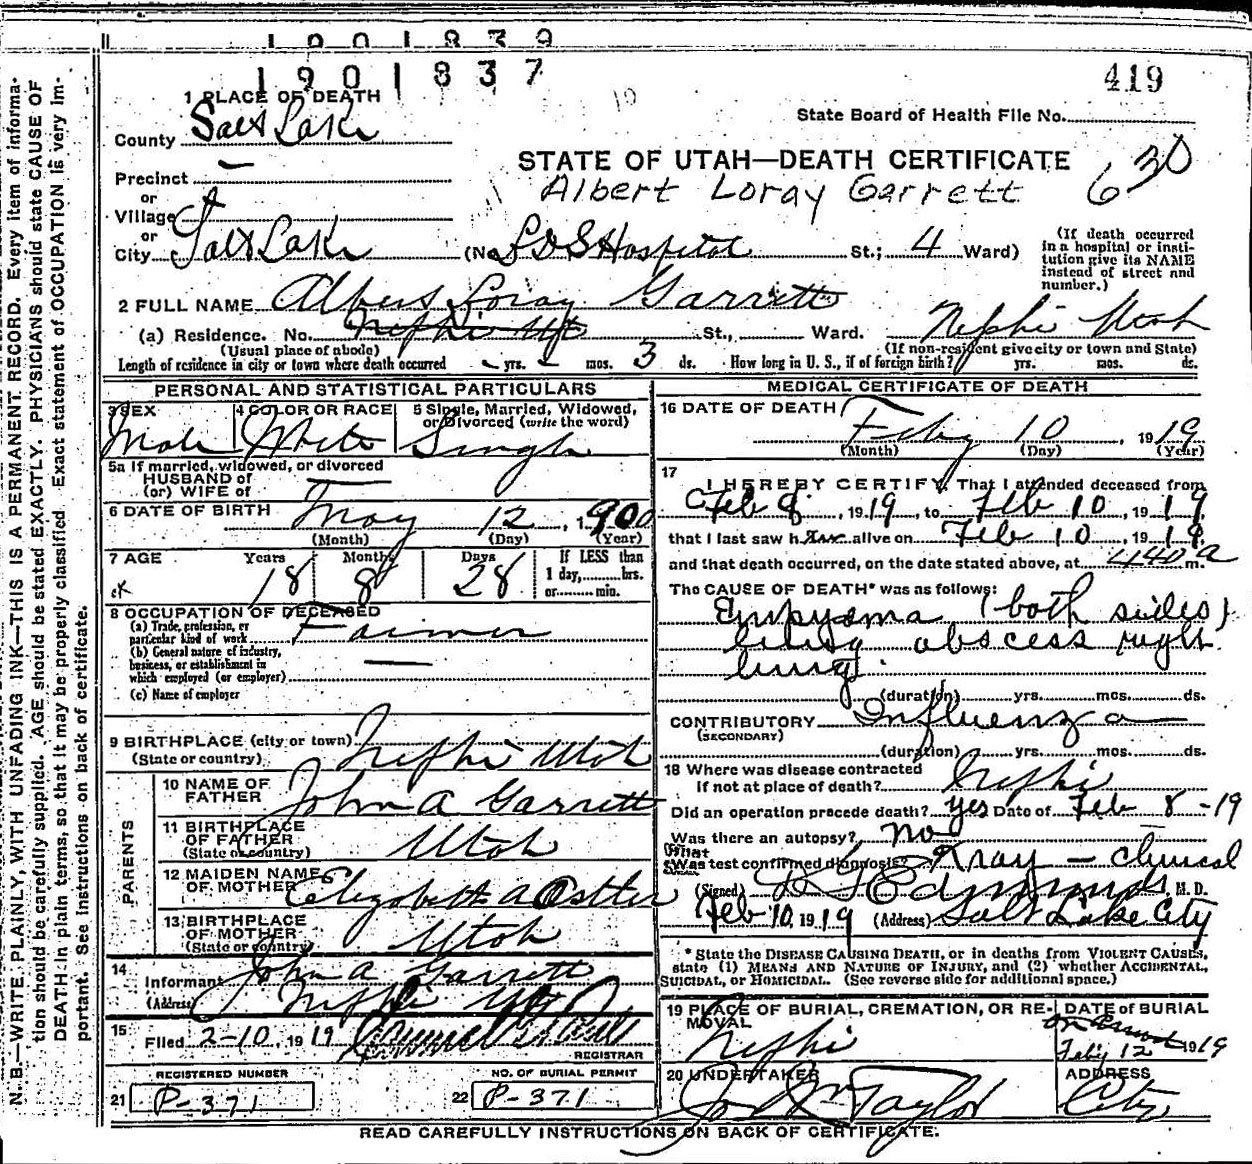 1901839
1901837
419
1 PLACE OF DEATH
State Board of Health File No.
County Salt Lake
STATE OF UTAH—DEATH CERTIFICATE 630
Precinct —
Albert Loray Garrett
or
Village
or
City Salt Lake (No LDS Hospital St.; 4 Ward)
(If death occurred in a hospital or insti-
tution give its NAME
instead of street and
number.)
2 FULL NAME Albert Loray Garrett
(a) Residence. No. Nephi Ut St., Ward. Nephi Utah
(Usual place of abode) (If non-resident give city or town and State)
Length of residence in city or town where death occurred - yrs. - mos. 3 ds. How long in U. S., if of foreign birth? yrs. mos. ds.
PERSONAL AND STATISTICAL PARTICULARS
3 SEX Male
4 COLOR OR RACE White
5 Single, Married, Widowed,
or Divorced (write the word)
Single
5a If married, widowed, or divorced
HUSBAND of
(or) WIFE of —
6 DATE OF BIRTH May 12, 1900
(Month) (Day) (Year)
7 AGE Years Months Days If LESS than
18 8 28 1 day, hrs.
or min.
8 OCCUPATION OF DECEASED
(a) Trade, profession, or
particular kind of work Farmer
(b) General nature of industry,
business, or establishment in
which employed (or employer) —
(c) Name of employer
9 BIRTHPLACE (city or town) Nephi Utah
(State or country)
PARENTS
10 NAME OF
FATHER John A Garrett
11 BIRTHPLACE
OF FATHER Utah
(State or country)
12 MAIDEN NAME
OF MOTHER Elizabeth A Ostler
13 BIRTHPLACE
OF MOTHER Utah
(State or country)
14 Informant John A Garrett
(Address) Nephi Ut
15 Filed 2-10, 1919
REGISTRAR
REGISTERED NUMBER NO. OF BURIAL PERMIT
21 P-371 22 P-371
MEDICAL CERTIFICATE OF DEATH
16 DATE OF DEATH
Feby 10, 1919
(Month) (Day) (Year)
17 I HEREBY CERTIFY, That I attended deceased from
Feb 8, 1919, to Feb 10, 1919
that I last saw him alive on Feb 10, 1919
and that death occurred, on the date stated above, at 440 a m.
The CAUSE OF DEATH* was as follows:
Empyema (both sides)
lung abscess right
lung.
(duration) yrs. mos. ds.
CONTRIBUTORY Influenza
(SECONDARY)
(duration) yrs. mos. ds.
18 Where was disease contracted
If not at place of death? Nephi
Did an operation precede death? yes Date of Feb 8-19
Was there an autopsy? no
What test confirmed diagnosis? Xray — clinical
(Signed) Edmunds, M. D.
Feb 10, 1919 (Address) Salt Lake City
* State the DISEASE CAUSING DEATH, or in deaths from VIOLENT CAUSES,
state (1) MEANS AND NATURE OF INJURY, and (2) whether ACCIDENTAL,
SUICIDAL, or HOMICIDAL. (See reverse side for additional space.)
19 PLACE OF BURIAL, CREMATION, OR RE-
MOVAL
Nephi
DATE OF BURIAL
Feby 12 1919
20 UNDERTAKER
Taylor
ADDRESS
City
READ CAREFULLY INSTRUCTIONS ON BACK OF CERTIFICATE.
N. B.—WRITE PLAINLY, WITH UNFADING INK—THIS IS A PERMANENT RECORD. Every item of informa-
tion should be carefully supplied. AGE should be stated EXACTLY. PHYSICIANS should state CAUSE OF
DEATH in plain terms, so that it may be properly classified. Exact statement of OCCUPATION is very im-
portant. See instructions on back of certificate.